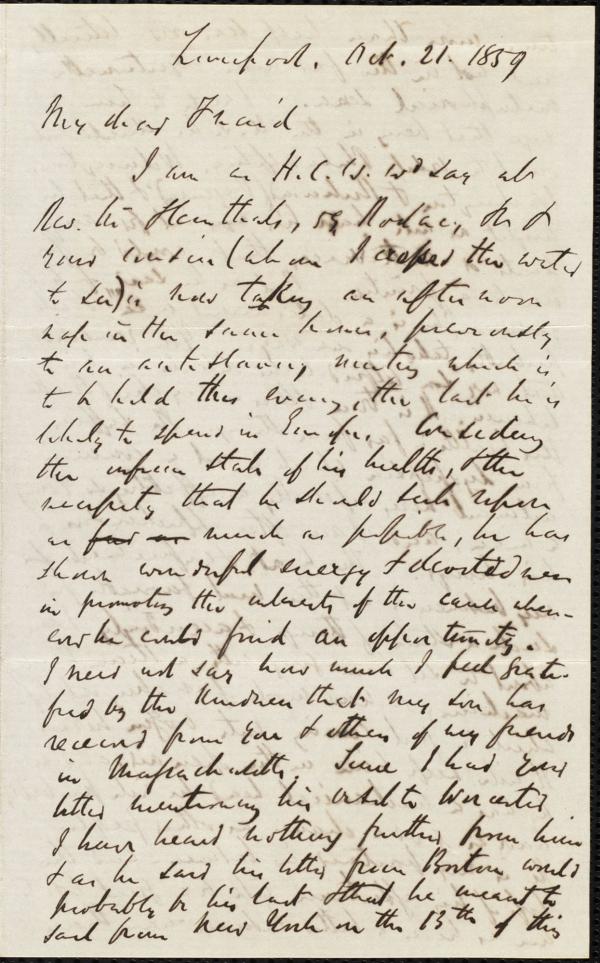 Liverpool. Oct. 21. 1859
My dear Friend
I am as H.C.W. wd say at
Rev. 59 Rodney St &
your cousin (whom I crossed the water
to see) is now taking an afternoon
nap in the same house, previously
to an antislavery meeting which is
to be held this evening, the last he is
likely to spend in Europe. Considering
the infirm state of his health, & the
necessity that he should seek repose
as much as possible, he has
shown wonderful energy & devotedness
in promoting the interests of the cause when-
ever he could find an opportunity.
I need not say how much I feel grati-
fied by the kindness that my son has
received from you & others of my friends
in Massachusetts. Since I had your
letter mentioning his visit to Worcester
I have heard nothing further from him
& as he said his letter from Boston would
probably be his last & that he meant to
sail from New York on the 13th of this